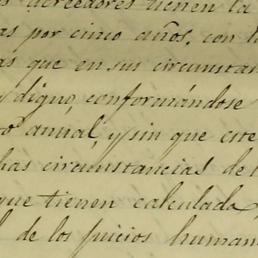 acreedores tienen la
as por cinco años, con
as que en sus circunstan
y digno, conformándose
anual, y sin que este
has circunstancias de
que tienen calculada
de los juicios human